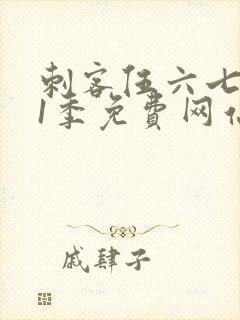 刺客伍六七
1季免费网
戚肆子